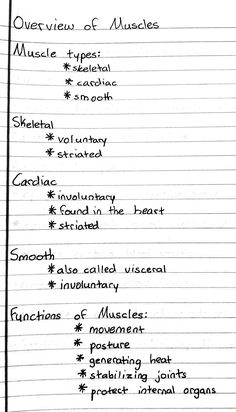 Overview of Muscles
Muscle types:
* skeletal
* cardiac
* smooth
Skeletal
* voluntary
* striated
Cardiac
* involuntary
* found in the heart
* striated
Smooth
* also called visceral
* involuntary
Functions of Muscles:
* movement
* posture
* generating heat
* stabilizing joints
* protect internal organs